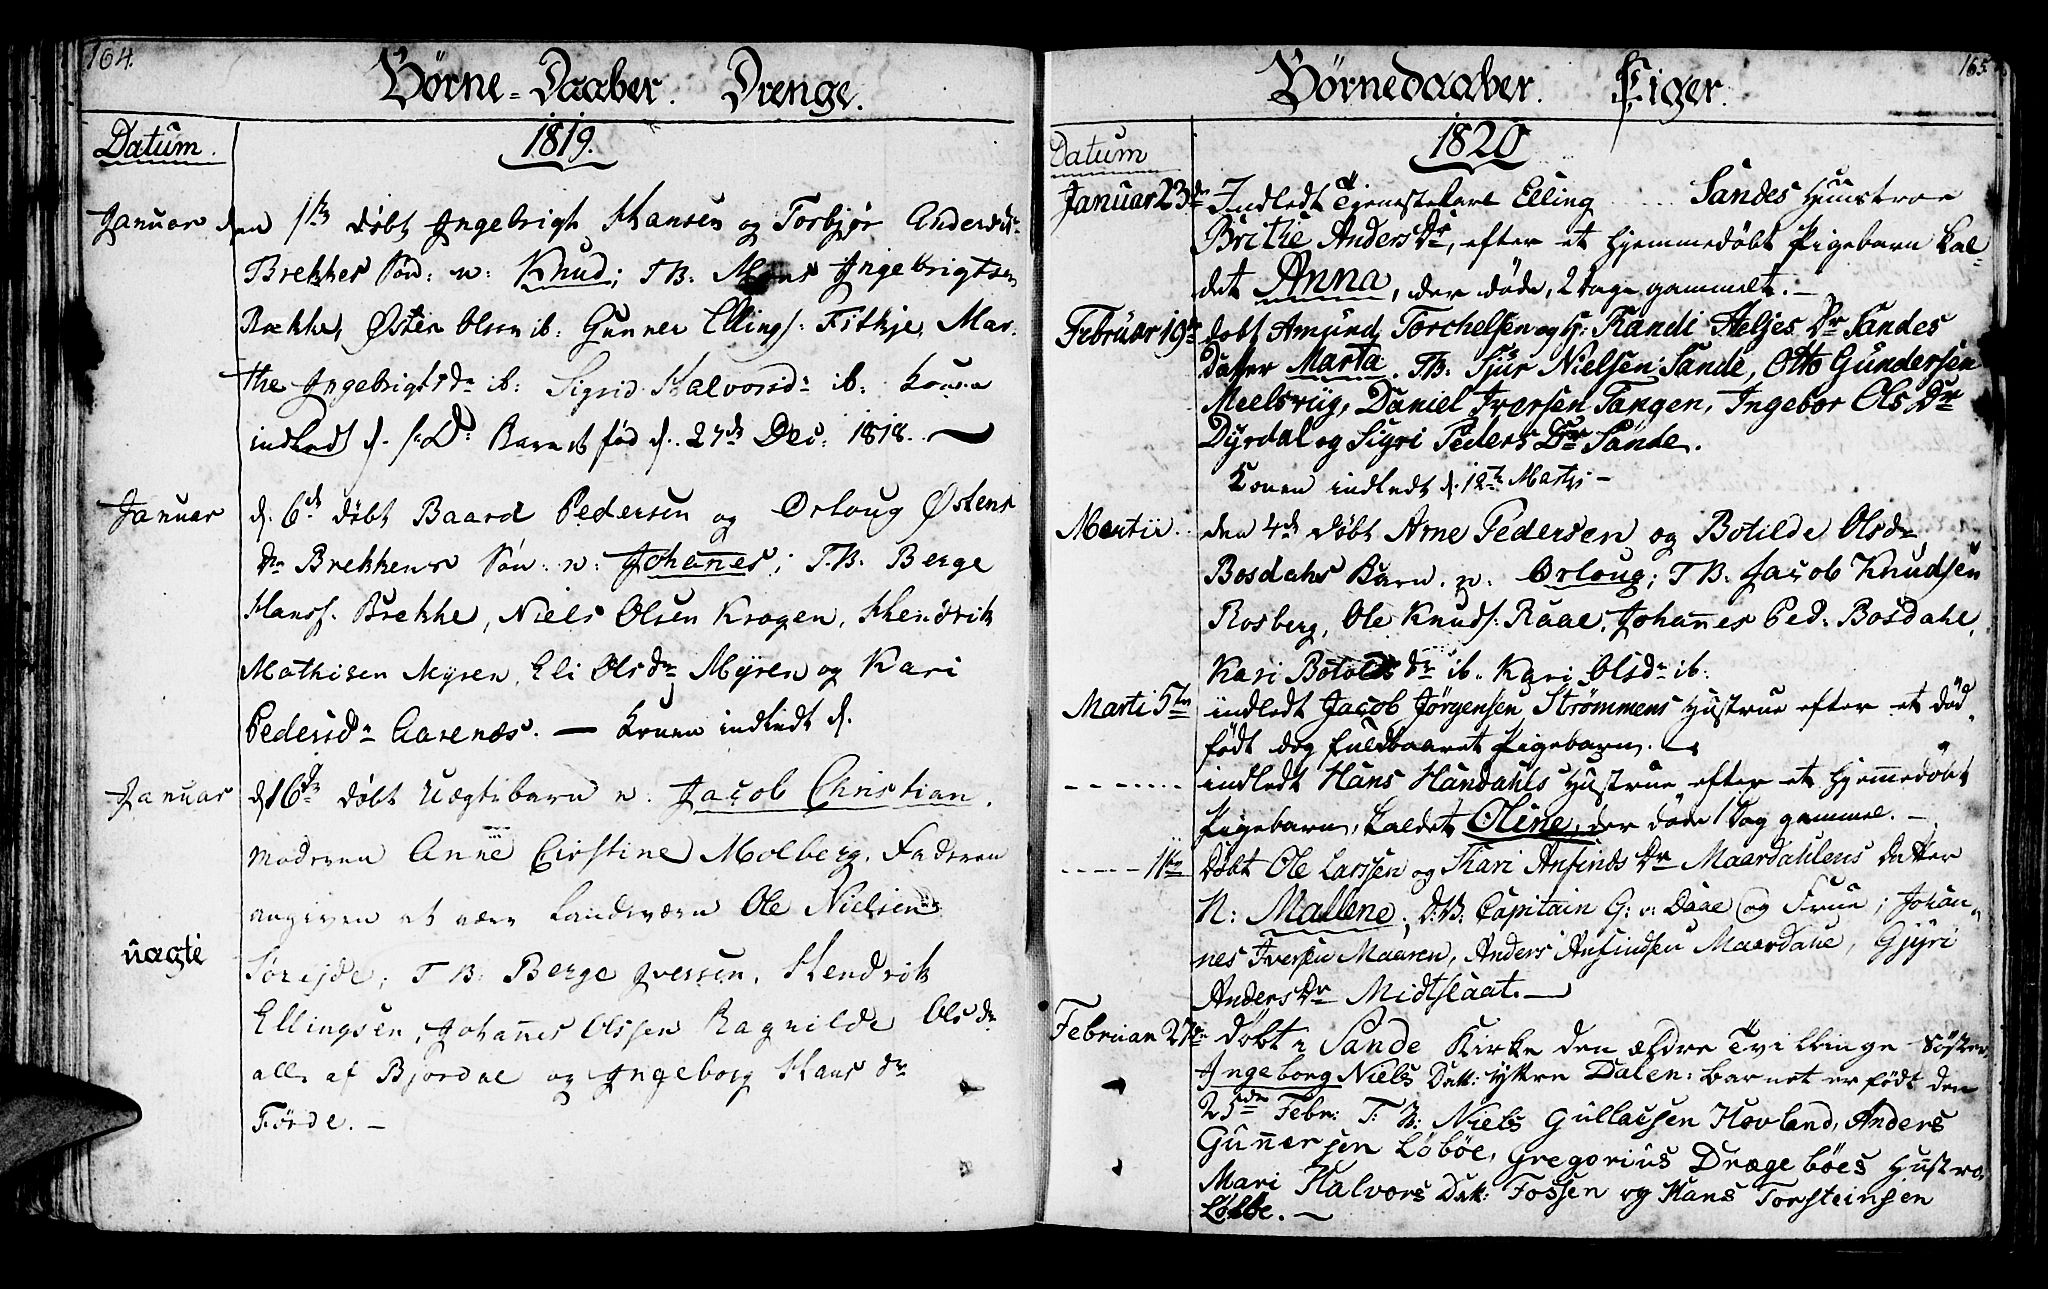 164.
Børne-Daaber. Drenge.
Datum.
1819.
Januar den 1ste døbt Ingebrigt Hansen og Torbjør Andersd:
Brekkes Søn: n: Knud; T B: Mons Ingebrigtsen
Brekke, Østen Olsen ib: Gunner Ellings: Fitkje, Mar-
the Ingebrigtsdr ib: Sigrid Halvorsdr ib: Konen
indledt d. s: D: Barnet fød d. 27de Dec: 1818.
Januar d. 6te døbt Baard Pedersen og Orloug Østens
dr Brekkens Søn: n: Johañes; T.B: Berge
Hanss. Brekke, Niels Olsen Kragen, Hendrik
Mathisen Myren, Eli Olsdr Myren og Kari
Pedersdr Aarenæs. — Konen indledt d.
Januar d 16de døbt Uægtebarn n. Jacob Christian.
Moderen Anne Cirstine Molberg. Faderen
angiven at være Landeværn Ole Nielsen
uægte
Søreide; T B: Berge Iversen, Hendrik
Ellingsen, Johañes Olssen Ragnilde Olsdr
alle af Bjordal og Ingeborg Hans dr
Førde. —
165.
Børnedaaber. Piger.
Datum
1820
Januar 23de Indledt Tjenestekarl Elling ..... Sandes Hustroe
Brithe Anders Dr, efter et hjemmedøbt Pigebarn kal-
det Anna, der døde, 2 dage gammelt. —
Februar 19de døbt Amund Torchelsen og H: Randi Heljes Dr Sandes
Datter Marta. TB: Sjur Nielsen Sande, Otto Gundersen
Meelsvig, Daniel Iversen Tangen, Ingebor Ols Dr
Dyrdal og Sigri Peders Dr Sande.
Konen indledt d. 12te Martii —
Martii. den 4de døbt Arne Pedersen og Botilde Olsdr
Bosdahs Barn. n: Orloug; T B: Jacob Knudsen
Rosberg, Ole Knuds: Raae, Johañes Ped: Bosdahl,
Kari Botolds dr ib. Kari Olsdr ib:
Marti 5te indledt Jacob Jørgensen Strømmens Hustrue efter et død-
født dog fuldbaaret Pigebarn.
- - - - - - - indledt Hans Handahls Hustrue efter et hjem̄edøbt
Pigebarn, kaldet Oline, der døde 1 Dag gammel. —
- - - - - døbt Ole Larssen og Kari Anfinds Dr Maardahlens Datter
N: Mallene; T:B: Capitain G: v: Daae og Frue; Johan-
nes Iversen Maaren, Anders Anfindsen Maardahl, Gjyri
Anders Dr Midtslaat. —
Februar 27de døbt i Sande Kirke den ældre Tvillinge Søster
Ingeborg Niels Datt: yttre Dalen: barnet er født den
25de Febr: T: B: Niels Gullacsen Hovland, Anders
Guñersen Løbøe, Gregorius Drægebøes Hustro.
Mari Halvors Datt: Fossen og Hans Torsteinsen